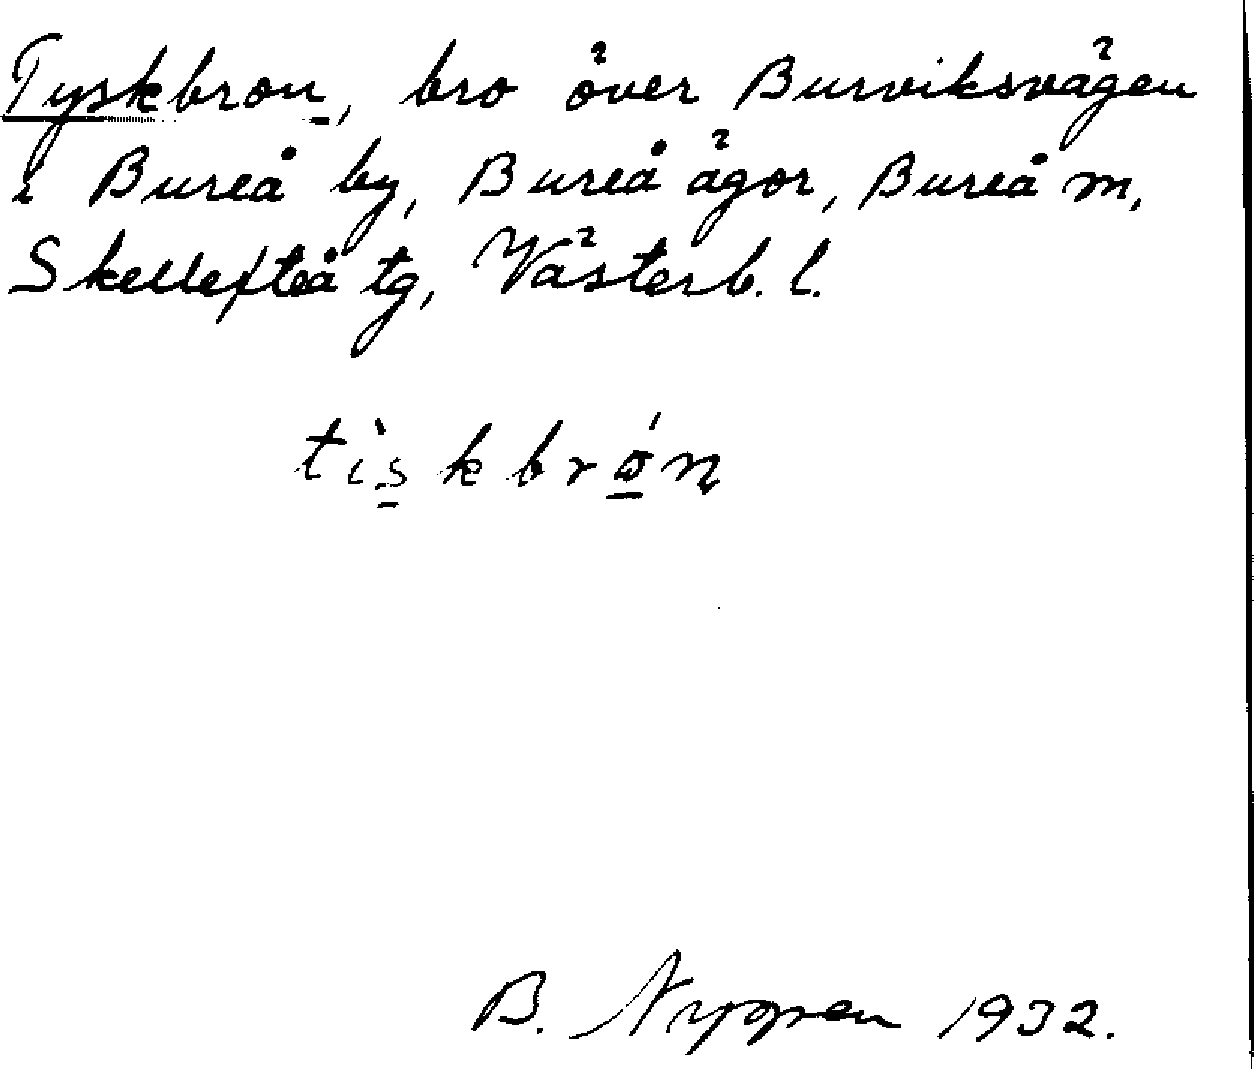 Tyskbron, bro över Burviksvägen
i Bureå by, Bureå ägor, Bureå m,
Skellefteå tg, Västerb. l.
tìskbrǿn
B. Nygren 1932.